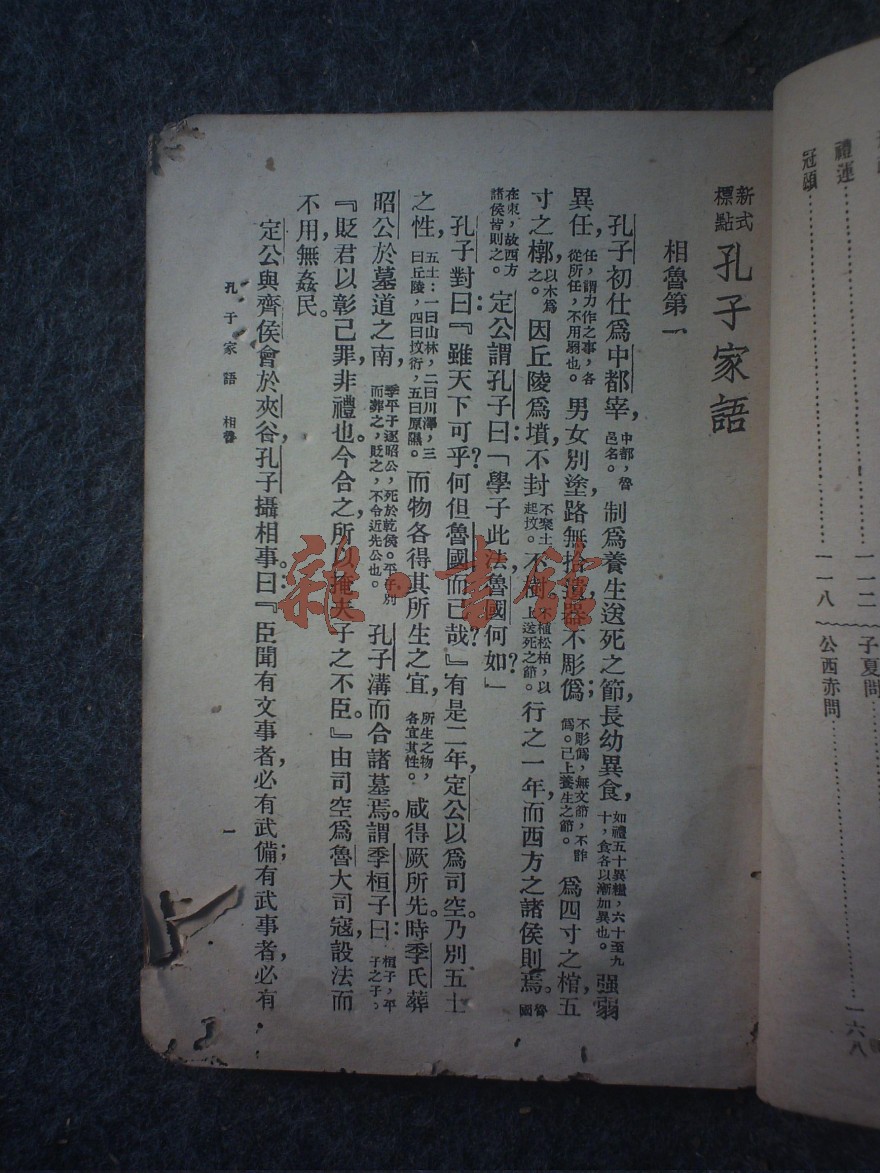 新式
標點
孔子家語
相魯第一
孔子初仕爲中都宰，中都，魯邑名。制爲養生送死之節，長幼異食，如禮五十異糧，六十至九十，食各以漸加異也。强弱
異任，任，謂力作之事，各從所任，不用弱也。男女別塗，路無拾遺，器不彫僞；不彫僞，無文飾，不詐僞。已上養生之節。爲四寸之棺，五
寸之槨，以木爲之。因丘陵爲墳，不封，不聚土起墳。不樹。不植松柏，以上送死之節。行之一年，而西方之諸侯則焉。魯國
在東，故西方諸侯皆則之。定公謂孔子曰：「學子此法，魯國何如？」
孔子對曰：『雖天下可乎？何但魯國而已哉？』有是二年，定公以爲司空。乃別五土
之性，五土：一曰山林，二曰川澤，三曰丘陵，四曰坟衍，五曰原隰。而物各得其所生之宜，所生之物，各宜其性。咸得厥所。先時季氏葬
昭公於墓道之南，季平子逐昭公，死於乾侯。平子別而葬之，貶之，不令近先公也。孔子溝而合諸墓焉。謂季桓子曰：桓子，平子之子。
『貶君以彰己罪，非禮也。今合之，所以掩夫子之不臣。』由司空爲魯大司寇，設法而
不用，無姦民。
定公與齊侯會於夾谷，孔子攝相事。曰：『臣聞有文事者，必有武備；有武事者，必有
孔子家語 相魯
一
禮運………一一二
冠頌………一一八
子夏問………
公西赤問………一六八
雜·書館